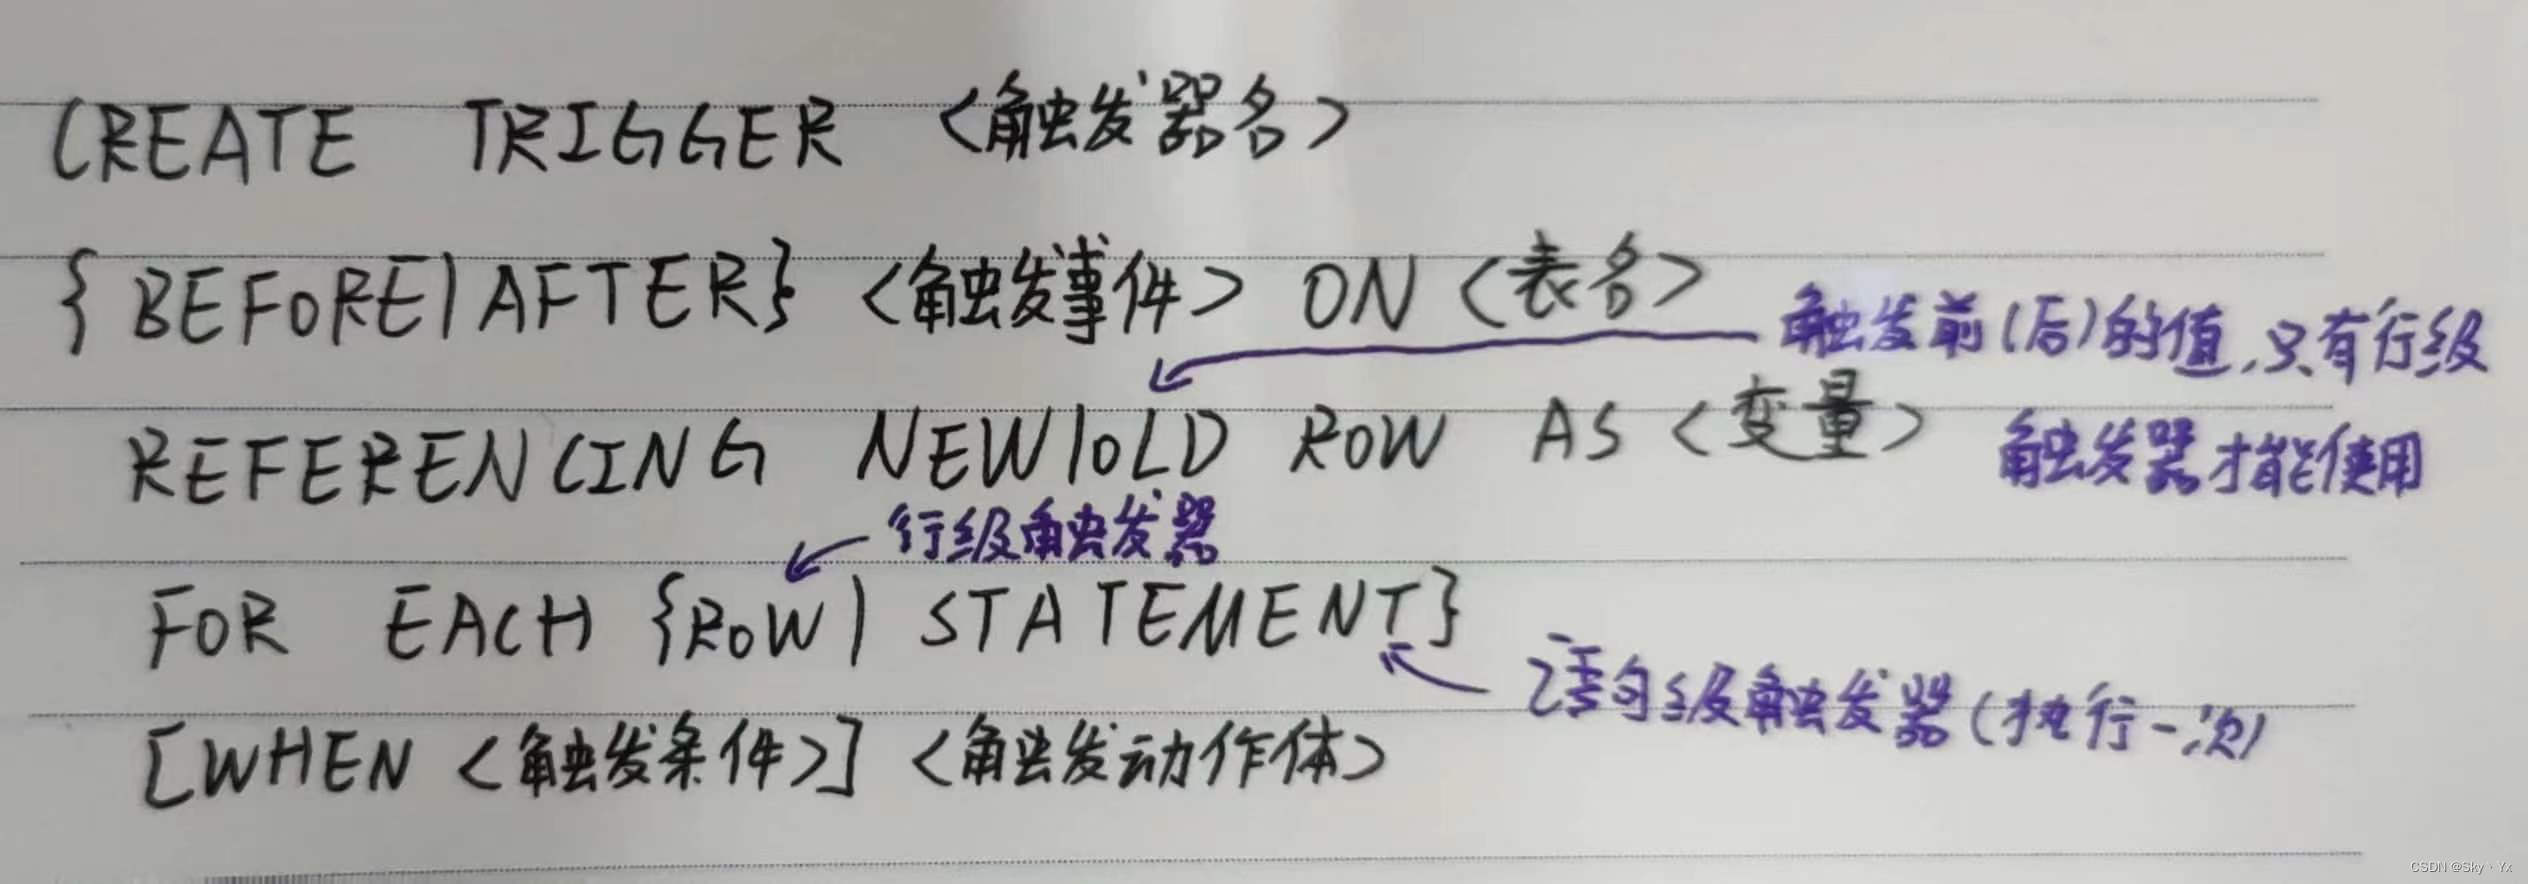 CREATE TRIGGER <触发器名>
{BEFORE|AFTER} <触发事件> ON <表名>
触发前(后)的值,只有行级
REFERENCING NEW|OLD ROW AS <变量>
触发器才能使用
行级触发器
FOR EACH {ROW| STATEMENT}
语句级触发器(执行一次)
[WHEN <触发条件>] <触发动作体>
CSDN @Sky·Yx